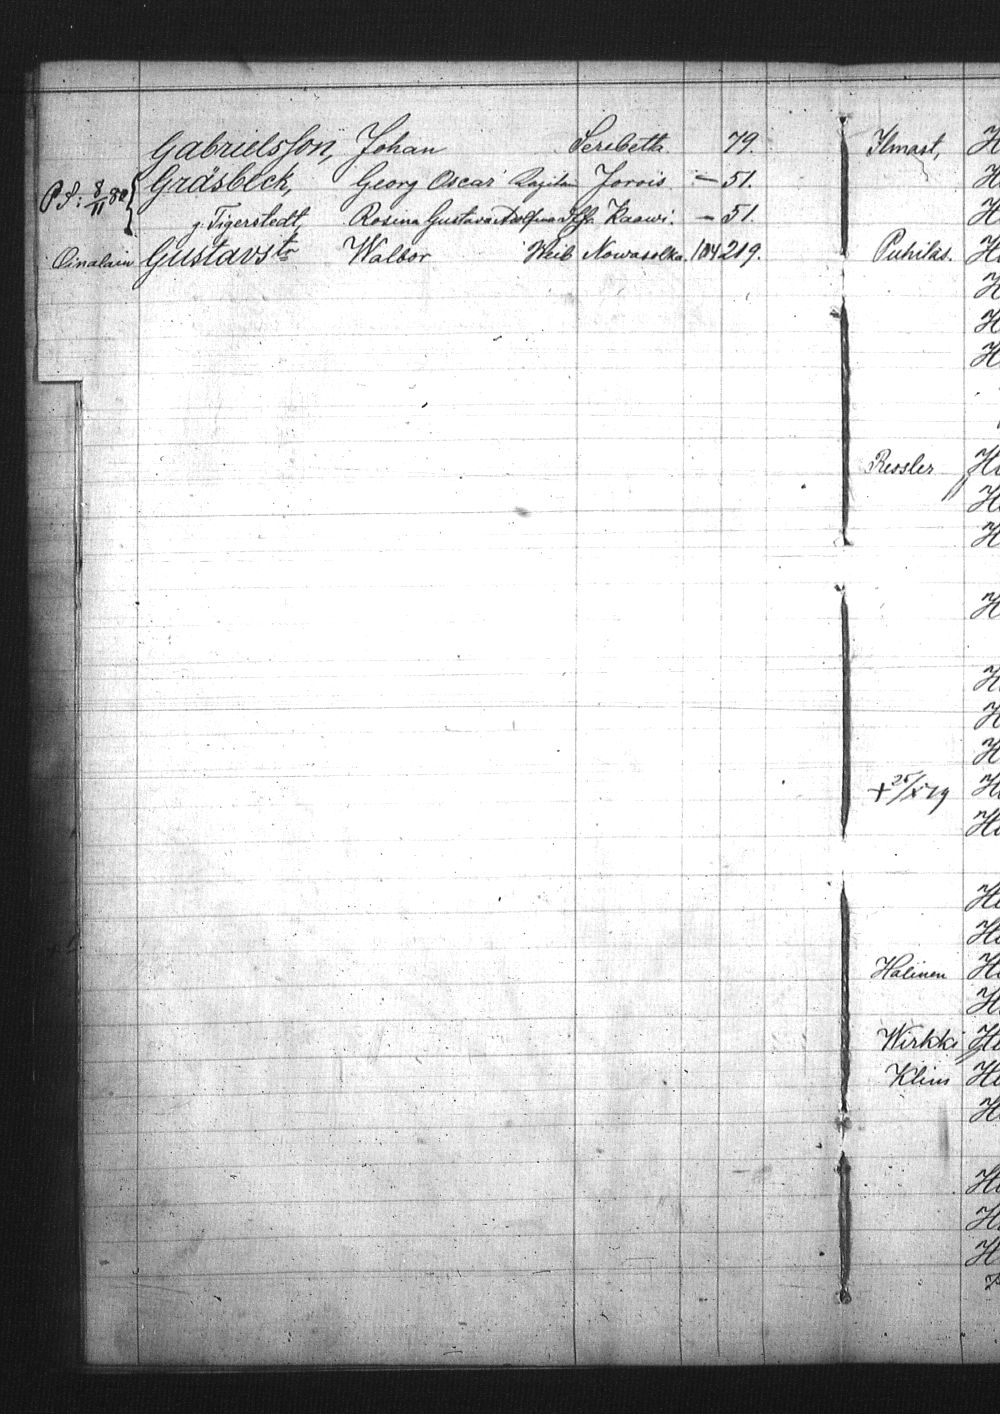 Gabrielsson, Johan Serebetta 79. Ilmast, H
P.S: 8/11 80 Gräsbeck, Georg Oscar Kapitän Jorois — 51. H
g. Tigerstedt, Rosina Gustava Kaawi. — 51. H
Oinalain Gustavstr Walbor Weib Nowasolka. 104 219. Puhilas. H
H
H
H
Ressler H
H
H
H
H
H
H
+ 25/X 19 H
H
H
H
Halinen H
H
Wirkki H
Klius H
H
H
H
H